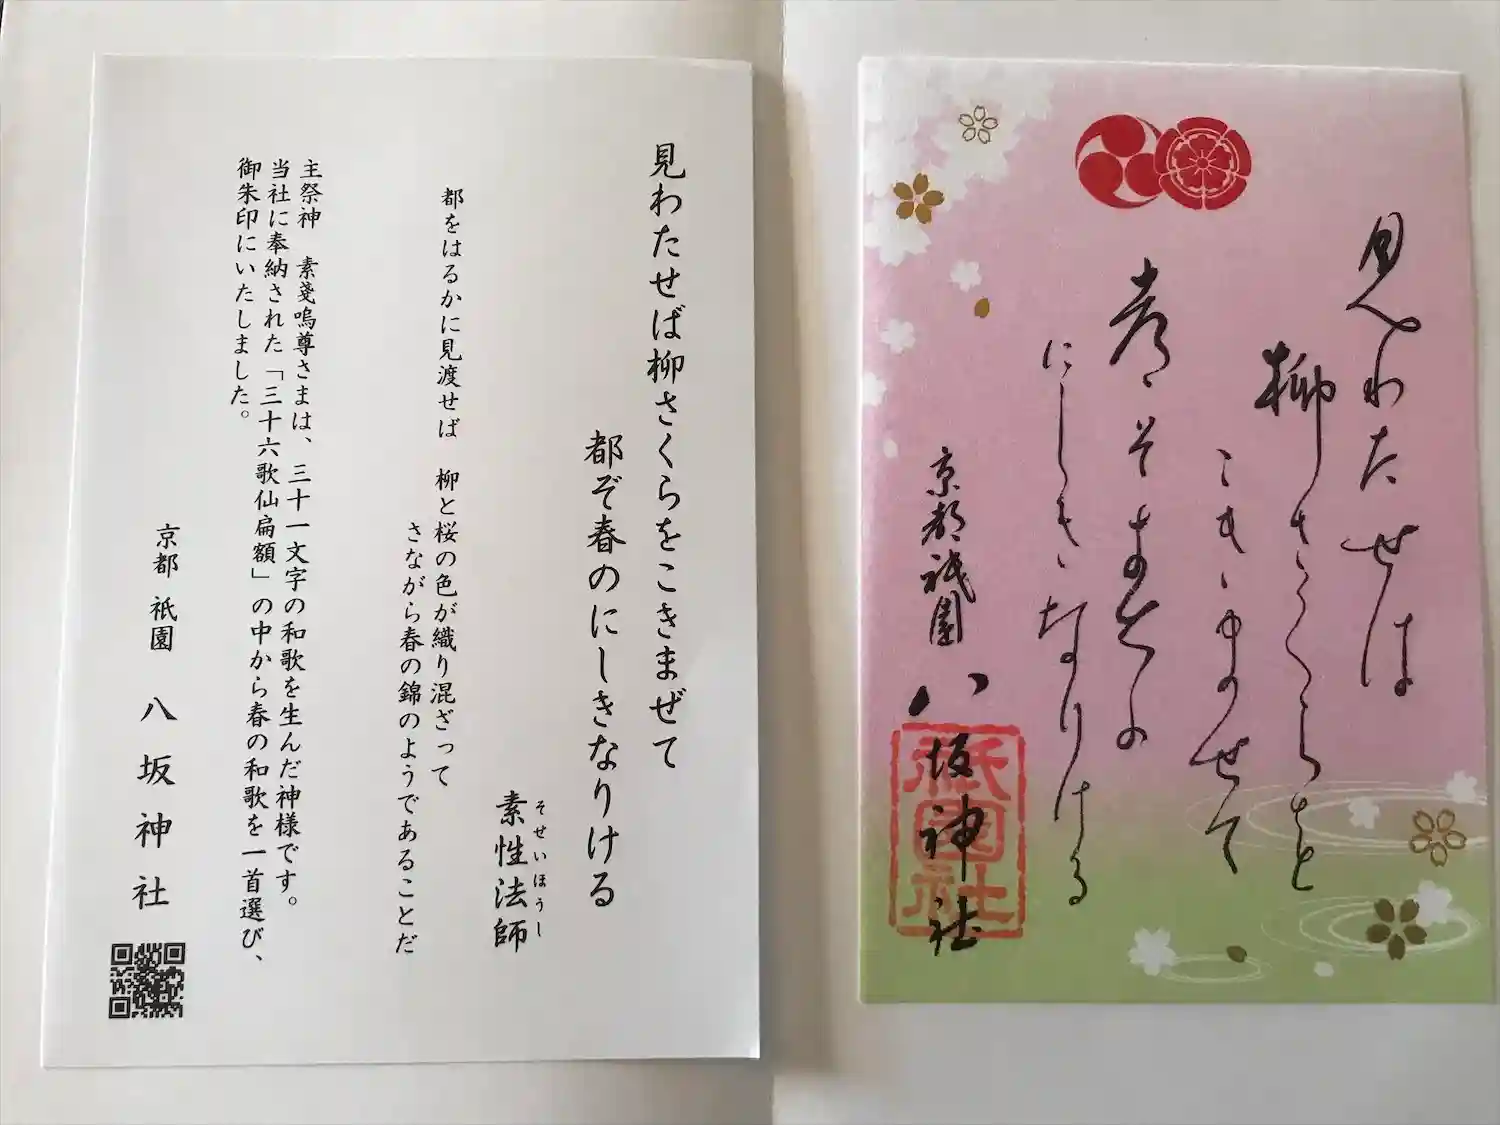 見わたせは
柳さくらを
こきませて
都そ春の
にしきなりける
京都祇園 八坂神社
祇園社
見わたせば柳さくらをこきまぜて
都ぞ春のにしきなりける
そせいほうし
素性法師
都をはるかに見渡せば 柳と桜の色が織り混ざって
さながら春の錦のようであることだ
主祭神 素戔嗚尊さまは、三十一文字の和歌を生んだ神様です。
当社に奉納された「三十六歌仙扁額」の中から春の和歌を一首選び、
御朱印にいたしました。
京都 祇園 八坂神社